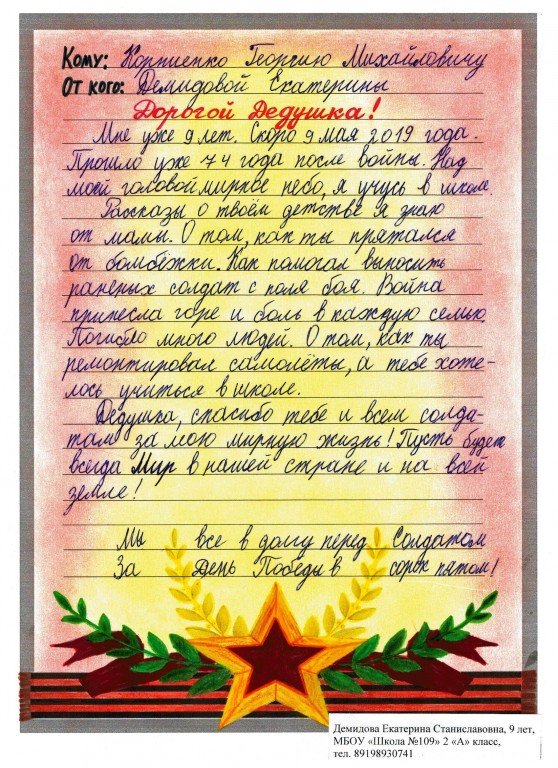 Кому: Корниенко Георгию Михайловичу
От кого: Демидовой Екатерины
Дорогой Дедушка!
Мне уже 9 лет. Скоро 9 мая 2019 года.
Прошло уже 74 года после войны. Над
моей головой мирное небо, я учусь в школе.
Рассказы о твоём детстве я знаю
от мамы. О том, как ты прятался
от бомбёжки. Как помогал выносить
раненых солдат с поля боя. Война
принесла горе и боль в каждую семью.
Погибло много людей. О том, как ты
ремонтировал самолёты, а тебе хоте-
лось учиться в школе.
Дедушка, спасибо тебе и всем солда-
там за мою мирную жизнь! Пусть будет
всегда Мир в нашей стране и на всей
земле!
Мы все в долгу перед Солдатом
За День Победы в сорок пятом!
Демидова Екатерина Станиславовна, 9 лет,
МБОУ «Школа №109» 2 «А» класс,
тел. 89198930741